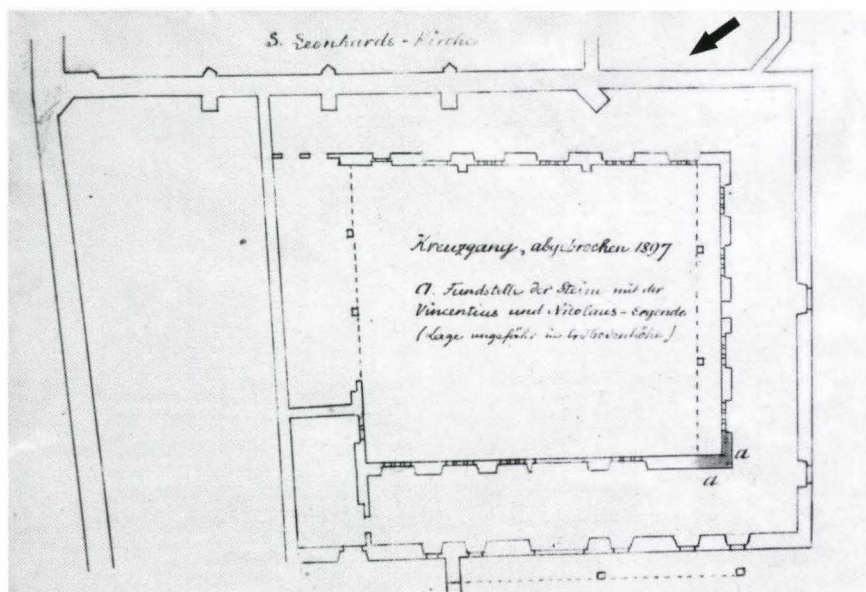 S. Leonhards-Kirche
Kreuzgang, abgebrochen 1897
a. Fundstelle der Steine mit der
Vincentius und Nicolaus-Legende
(Lage ungefähr in Erdbodenhöhe)
a
a